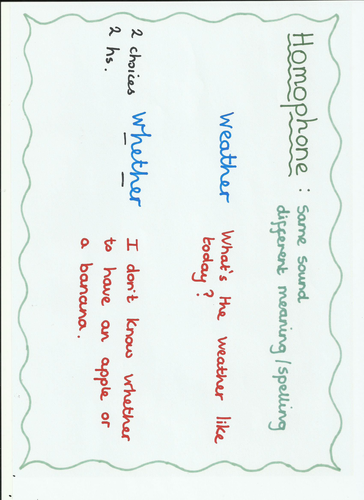 Homophone : Same sound
different meaning/spelling
Weather What's the weather like
today?
2 choices
2 hs.
Whether I don't know whether
to have an apple or
a banana.